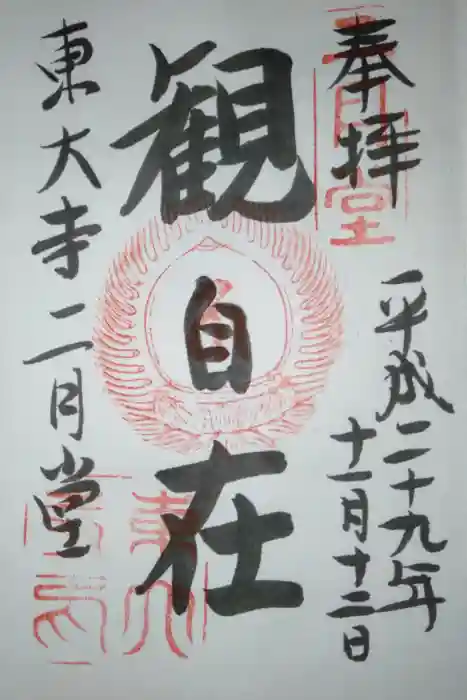 奉拝
平成二十九年
十一月十二日
観自在
東大寺二月堂
二月堂